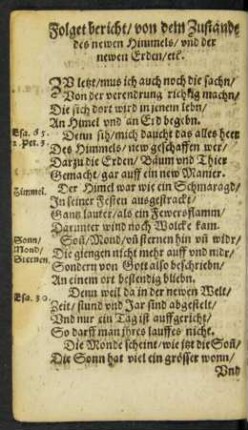 Folget bericht/ von dem Zustande
des newen Himmels/ vnd der
newen Erden/ etc.
ZV letzt/ mus ich auch noch die sachn/
Von der verendrung richtig machn/
Die sich dort wird in jenem lebn/
An Himel vnd an Erd begebn.
Esa. 65.
2. Pet. 3.
Denn sih/ mich daucht das alles heer
Des Himmels/ new geschaffen wer/
Darzu die Erden/ Bäum vnd Thier
Gemacht/ gar auff ein new Manier.
Himmel.
Der Himel war wie ein Schmaragd/
In seiner Festen ausgestrackt/
Gantz lauter/ als ein Fewersflamm/
Darunter wird noch Wolcke kam.
Sonn/
Mond/
Sternen.
Soñ/ Mond/ vñ sternen hin vñ widr/
Die giengen nicht mehr auff vnd nidr/
Sondern von Gott also beschriebn/
An einem ort bestendig bliebn.
Esa. 30.
Denn weil da in der newen Welt/
Zeit/ stund vnd Jar sind abgestelt/
Vnd nur ein Tag ist auffgericht/
So darff man jhres lauffes nicht.
Die Monde scheint/ wie jtzt die Soñ/
Die Sonn hat viel ein grösser wonn/
Vnd